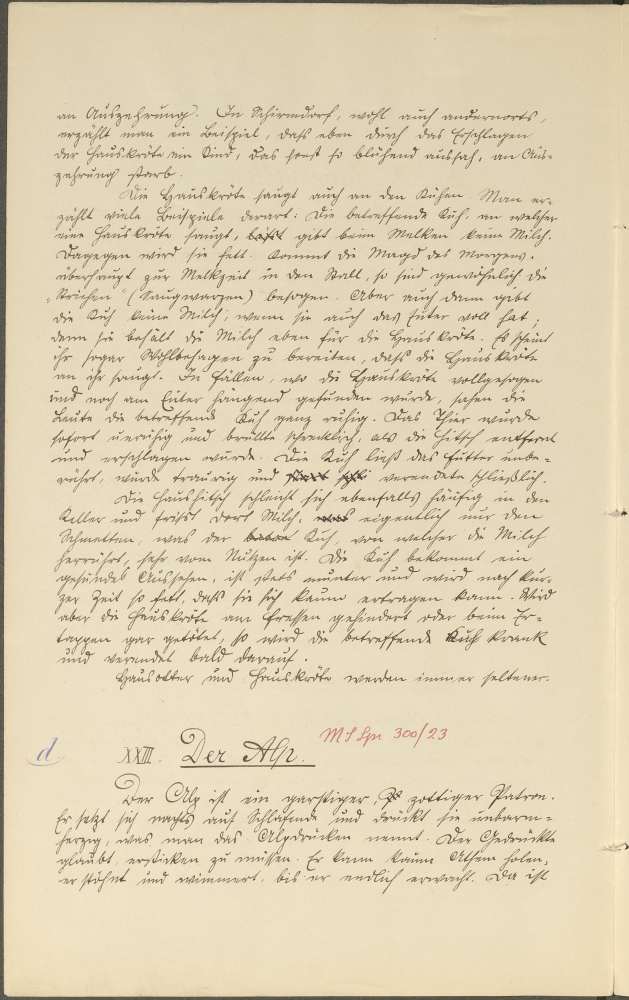 an Auszehrung. In Schirmdorf, wohl auch andernorts,
erzählt man ein Beispiel, daß eben durch das Erschlagen
der Hauskröte ein Kind, das sonst so blühend aussah, an Aus-
zehrung starb.
Die Hauskröte saugt auch an den Kühen. Man er-
zählt viele Beispiele derart: Die betreffende Kuh, an welcher
eine Hauskröte saugt, gibt beim Melken keine Milch.
Dagegen wird sie fett. Kommt die Magd des Morgens,
überhaupt zur Melkzeit in den Stall, so sind gewöhnlich die
"Strichen" (Saugwarzen) besogen. Aber auch dann gibt
die Kuh keine Milch, wenn sie auch das Euter voll hat;
denn sie behält die Milch eben für die Hauskröte. Es scheint
ihr sogar Wohlbehagen zu bereiten, daß die Hauskröte
an ihr saugt. In Fällen, wo die Hauskröte vollgesogen
und noch am Euter hängend gefunden wurde, sahen die
Leute die betreffende Kuh ganz ruhig. Das Thier wurde
sofort unruhig und brüllte schrecklich, als die Hitsch entfernt
und erschlagen wurde. Die Kuh ließ das Futter unbe-
rührt, wurde traurig und verendete schließlich.
Die Haushitsch schleicht sich ebenfalls häufig in den
Keller und frißt dort Milch, eigentlich nur den
Schmetten, was der Kuh, von welcher die Milch
herrührt, sehr vom Nutzen ist. Die Kuh bekommt ein
gesundes Aussehen, ist stets munter und wird nach kur-
zer Zeit so fett, daß sie sich kaum ertragen kann. Wird
aber die Hauskröte am Fressen gehindert oder beim Er-
tappen gar getötet, so wird die betreffende Kuh krank
und verendet bald darauf.
Hausotter und Hauskröte werden immer seltener.
MS Lpn 300/23
d XXIII. Der Alp.
Der Alp ist ein garstiger, zottiger Patron.
Er setzt sich nachts auf Schlafende und drückt sie unbarm-
herzig, was man das Alpdrücken nennt. Der Gedrückte
glaubt, ersticken zu müssen. Er kann kaum Athem holen,
er stöhnt und wimmert, bis er endlich erwacht. Da ist